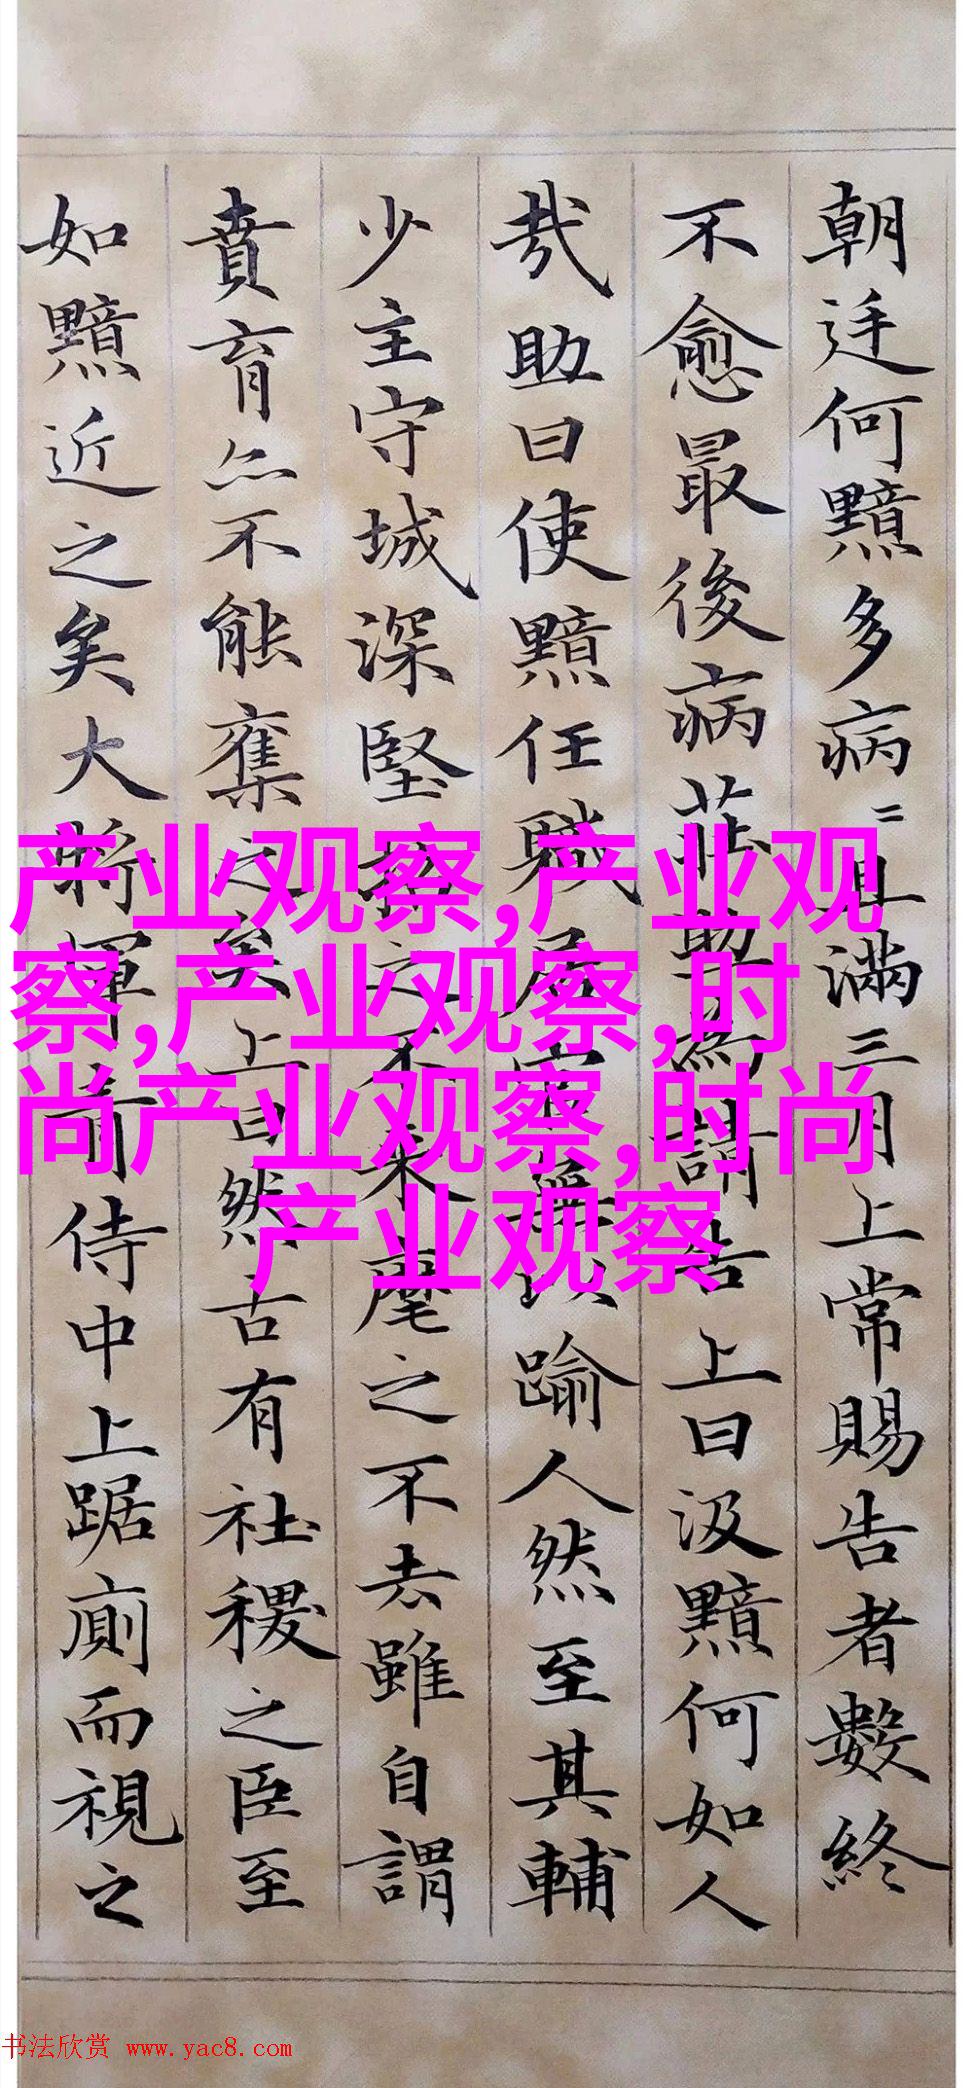 朝廷何黯多病=且滿三月上常賜告者數終
不愈最後病莊助為請告上曰汲黯何如人
哉助曰使黯任職居官無以踰人然至其輔
少主守城深堅招之不来麾之不去雖自謂
賁育亦不能奪之矣上曰然古有社稷之臣至
如黯近之矣大將軍青侍中上踞廁而視之
产业观察,产业观
察,产业观察,时
尚产业观察,时尚
产业观察
书法欣赏 www.yac8.com